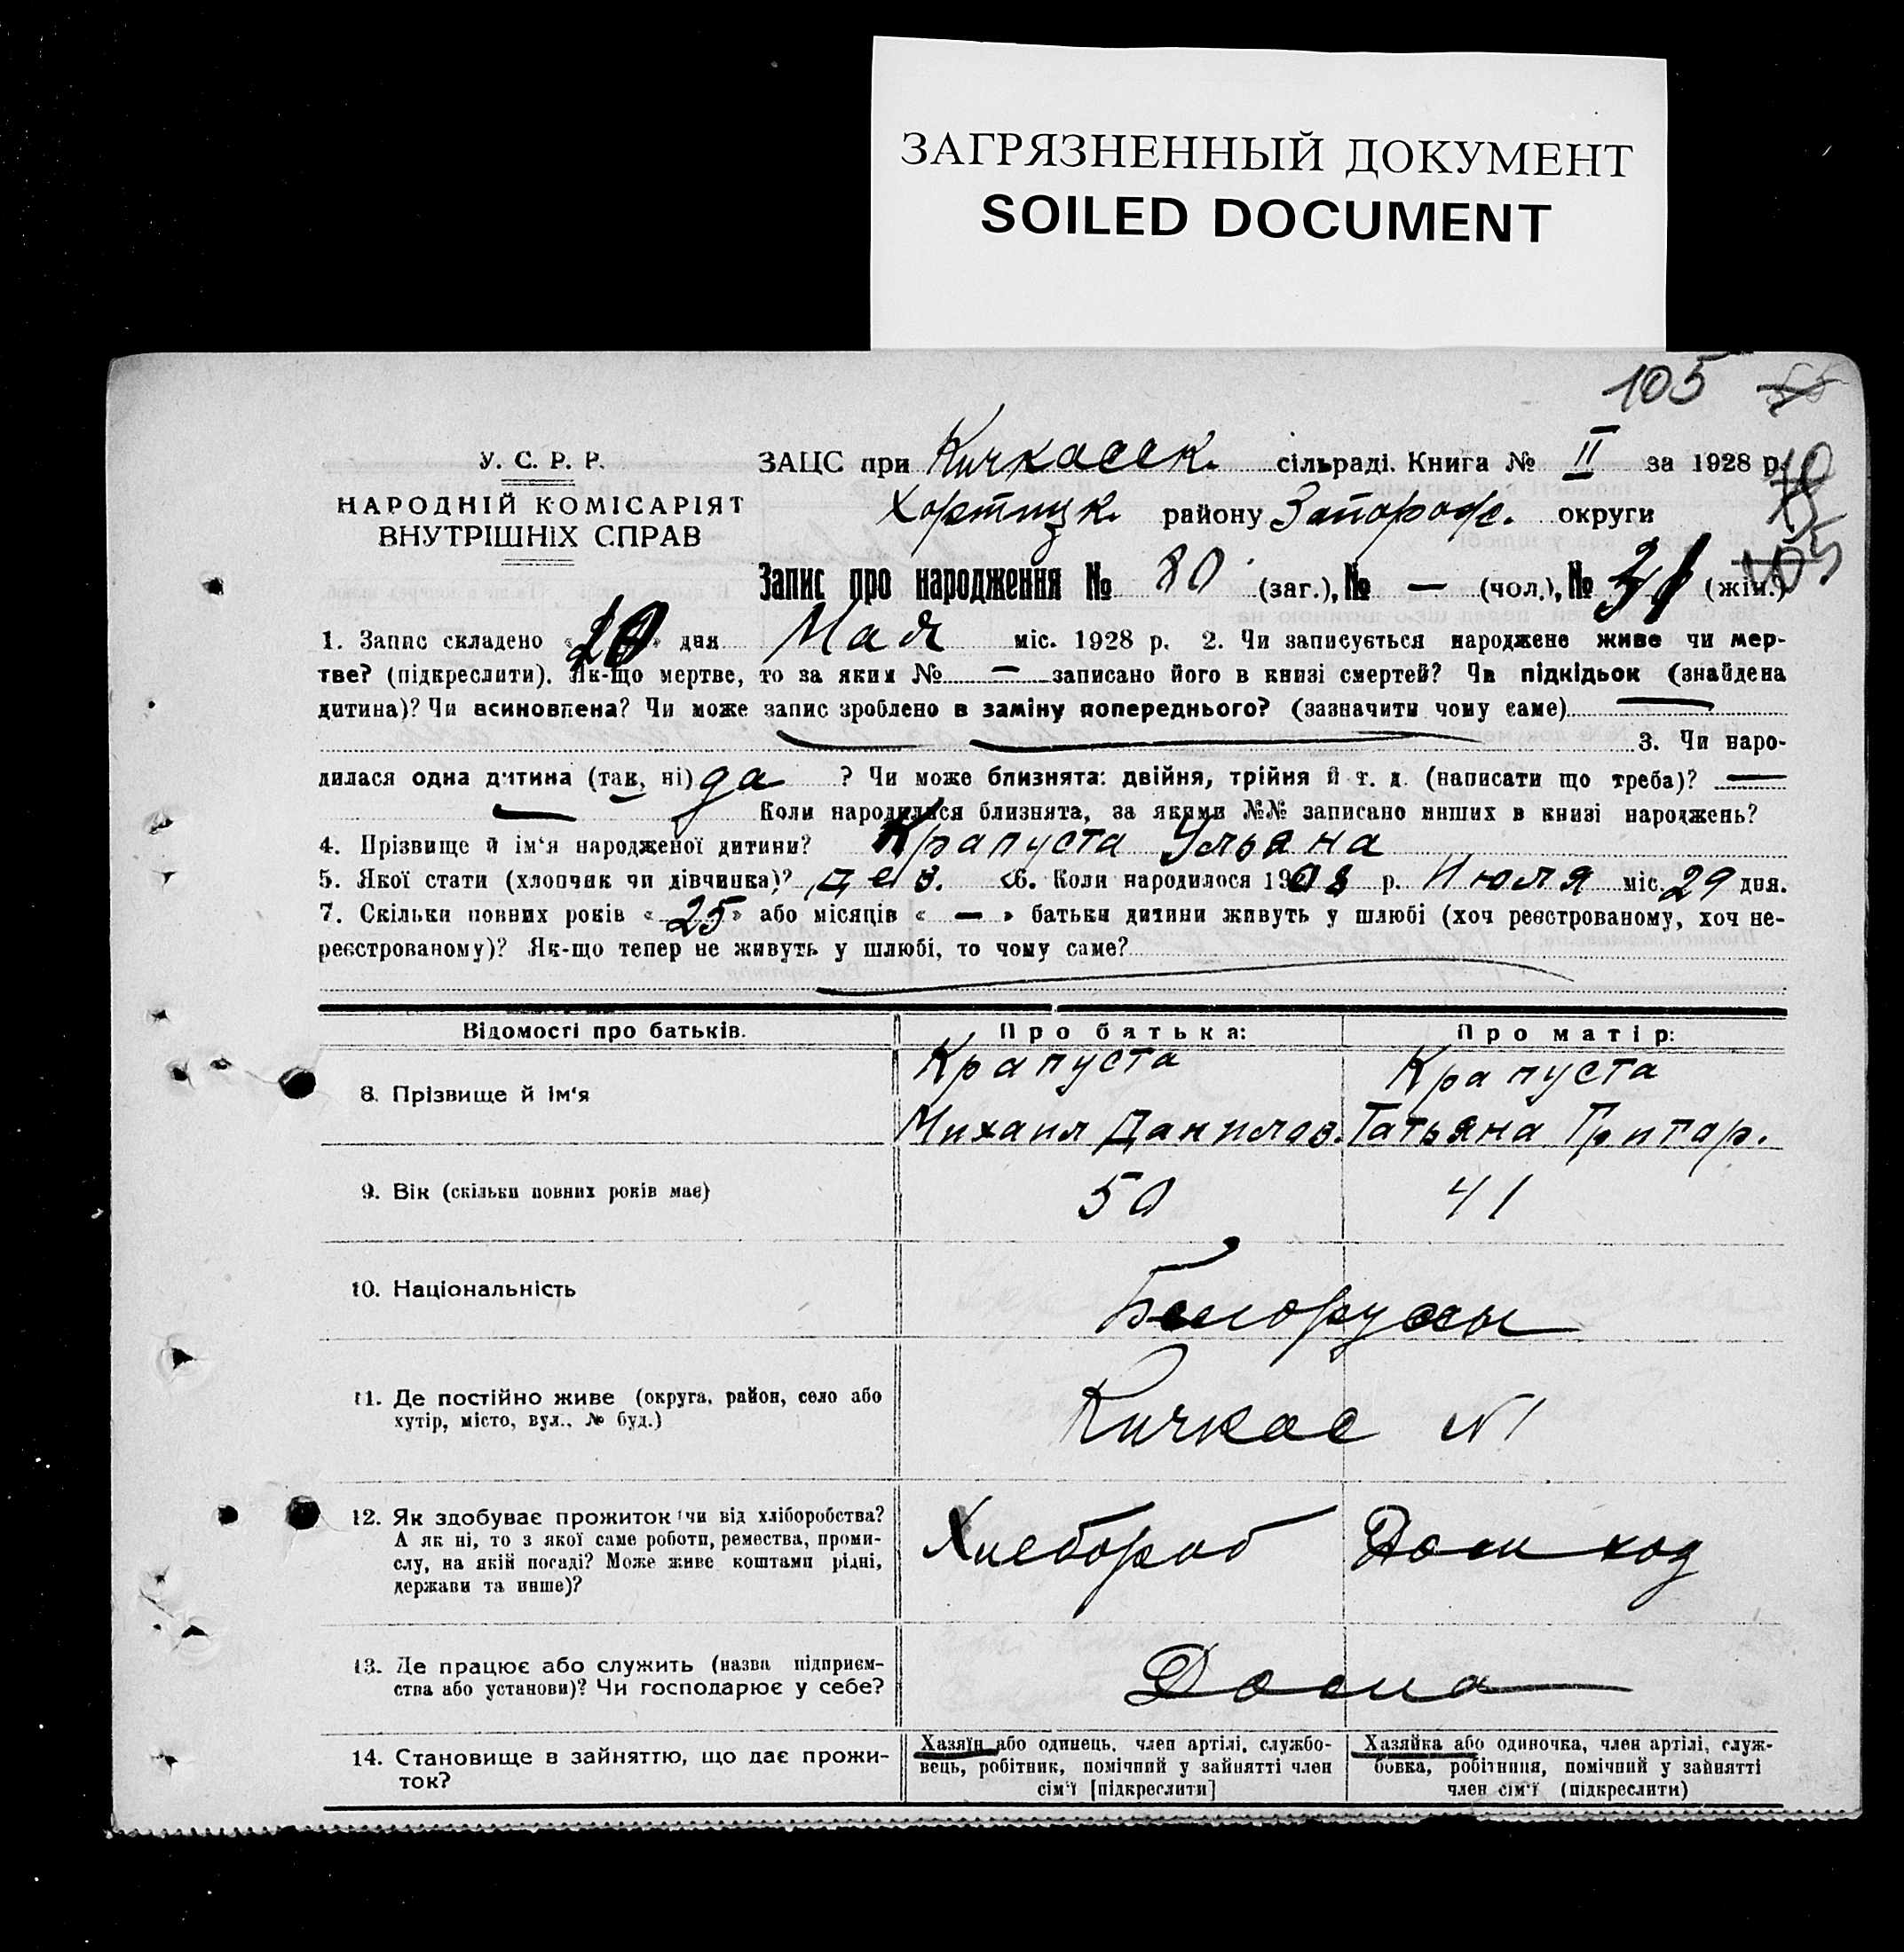 ЗАГРЯЗНЕННЫЙ ДОКУМЕНТ
SOILED DOCUMENT
105
У. С. Р. Р.
НАРОДНІЙ КОМІСАРІЯТ
ВНУТРІШНІХ СПРАВ
ЗАЦС при Кичкасск. сільраді. Книга № II за 1928 р.
Хортицк. району Запорож. округи
Запис про народження № 80 (заг.), № — (чол.), № 31 (жін.)
1. Запис складено «20» дня Мая міс. 1928 р. 2. Чи записується народжене живе чи мер-
тве? (підкреслити). Як-що мертве, то за яким № — записано його в книзі смертей? Чи підкідьок (знайдена
дитина)? Чи всиновлена? Чи може запис зроблено в заміну попереднього? (зазначити чому саме) —
3. Чи наро-
дилася одна дитина (так, ні) да ? Чи може близнята: двійня, трійня й т. д. (написати що треба)? —
— Коли народилися близнята, за якими №№ записано инших в книзі народжень?
4. Прізвище й ім‘я народженої дитини? Крапуста Ульяна
5. Якої стати (хлопчик чи дівчинка)? дев. 6. Коли народилося 1908 р. Июля міс. 29 дня.
7. Скільки повних років «25» або місяців « — » батьки дитини живуть у шлюбі (хоч реєстрованому, хоч не-
реєстрованому)? Як-що тепер не живуть у шлюбі, то чому саме?
Відомості про батьків.
Про батька:
Про матір:
8. Прізвище й ім‘я
Крапуста
Михаил Данилов.
Крапуста
Татьяна Григор.
9. Вік (скільки повних років має)
50
41
10. Національність
Белоруссы
11. Де постійно живе (округа, район, село або
хутір, місто, вул., № буд.)
Кичкас №1
12. Як здобуває прожиток чи від хліборобства?
А як ні, то з якої саме роботи, ремества, проми-
слу, на якій посаді? Може живе коштами рідні,
держави та инше)?
Хлебороб
Дом хоз
13. Де працює або служить (назва підприєм-
ства або установи)? Чи господарює у себе?
Дома
14. Становище в зайняттю, що дає прожи-
ток?
Хазяїн або одинець, член артілі, службо-
вець, робітник, помічний у зайнятті член
сім‘ї [підкреслити]
Хазяйка або одиночка, член артілі, служ-
бовка, робітниця, помічний у зайнятті
член сім‘ї (підкреслити)